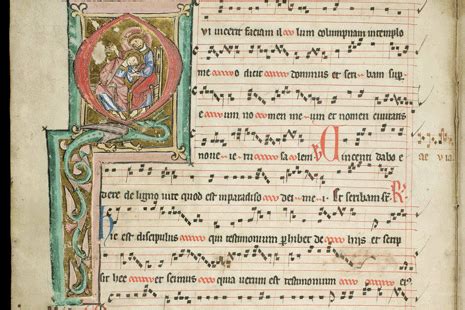 vi vicerit faciam il lum columpnam intemplo
me o dicit dominus et scri bam sup
e um no men me um et nomen civitatis
none ie ru sa lem V incenti dabo e
dere de ligno vite quod est inparadiso dei me i Et scribam R
hic est discipulus qui testimonium p hibet de his et scrip
sit hec et scimus qua verum est testimonium ei